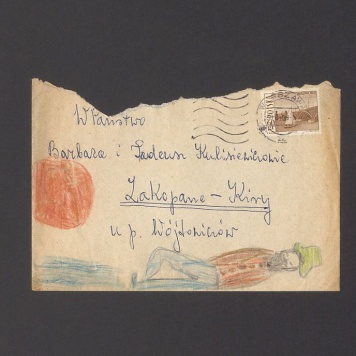 WPaństwo
Barbara i Tadeusz Kulisiewiczowie
Zakopane - Kiry
u p. Wójtowiczów